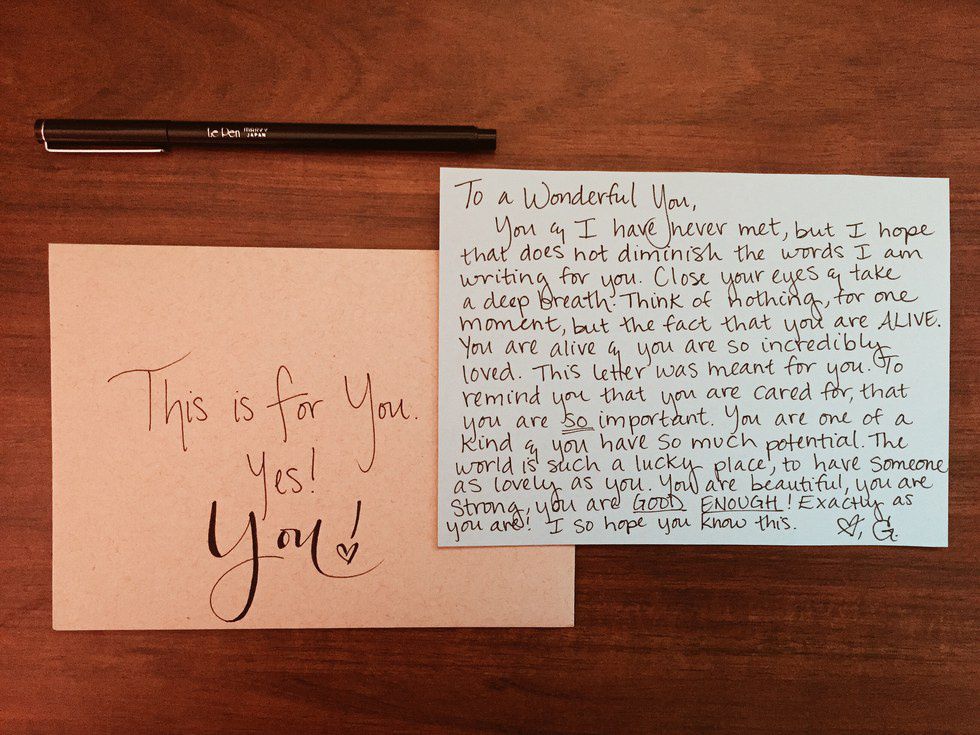 Le Pen MARVY JAPAN
To a Wonderful You,
You & I have never met, but I hope
that does not diminish the words I am
writing for you. Close your eyes & take
a deep breath. Think of nothing, for one
moment, but the fact that you are ALIVE.
You are alive & you are so incredibly
loved. This letter was meant for you. To
remind you that you are cared for, that
you are so important. You are one of a
kind & you have so much potential. The
world is such a lucky place, to have someone
as lovely as you. You are beautiful, you are
strong, you are GOOD ENOUGH! Exactly as
you are! I so hope you know this. ♡, G.
This is for You.
Yes!
You! ♡